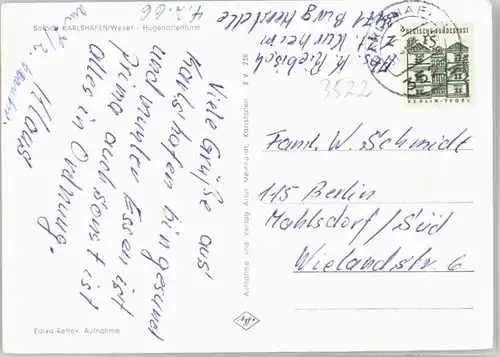 Solbad KARLSHAFEN/Weser - Hugenottenturm
4.2.66
Viele Grüße aus
Karlshafen bin gesund
und munter Essen ist
Prima auch sonst ist
alles in Ordnung.
Klaus
Abs. K. Riebisch
z. Zt. Kurheim
3571 Burg Herstelle
3522
DEUTSCHE BUNDESPOST
15
BERLIN-TEGEL
Faml. W. Schmidt
115 Berlin
Mahlsdorf/Süd
Wielandstr. 6
Aufnahme und Verlag Artur Meinhard, Karlshafen E.V. 258
Ediva Reflex. Aufnahme